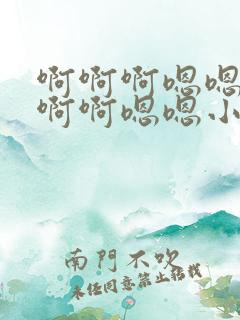 啊啊啊嗯嗯
啊啊嗯嗯小
南門不吹
未经同意禁止转载